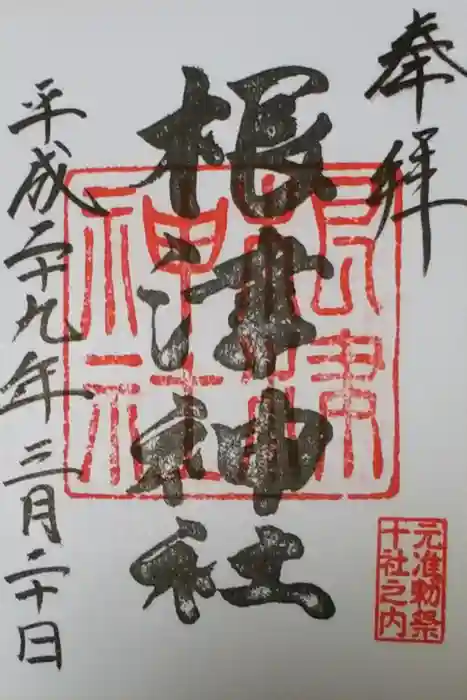 奉拝
根津神社
根津
神社
元准勅祭
十社之内
平成二十九年三月二十日